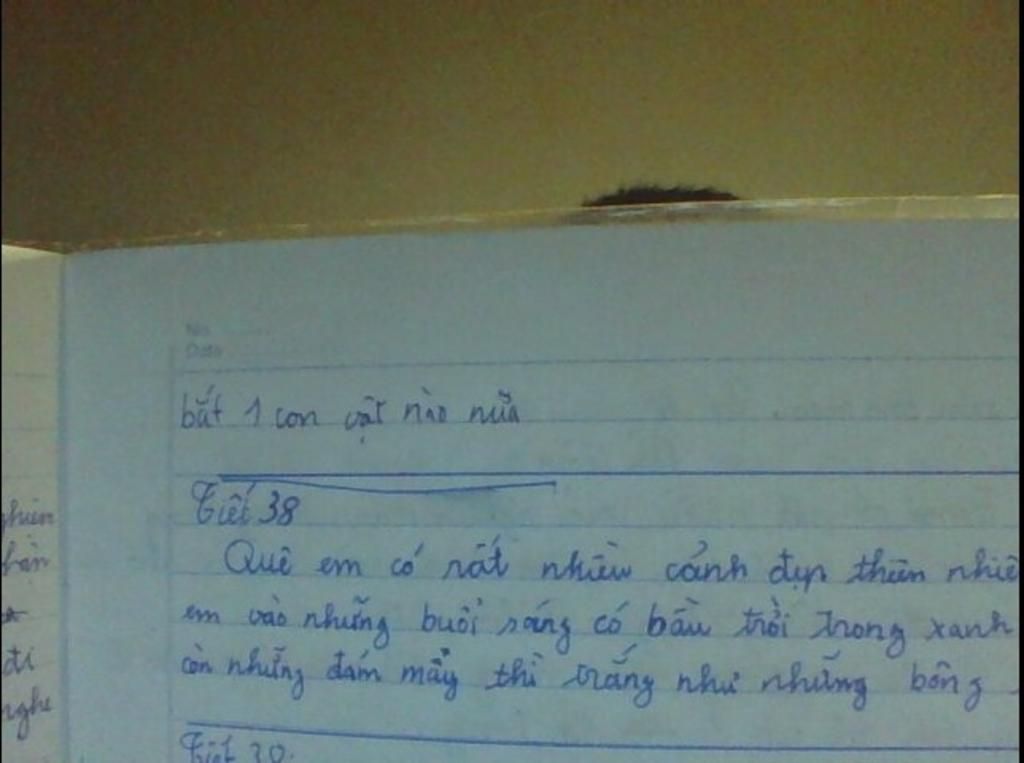 No.
Date
bắt 1 con vật nào nữa
Tiết 38
Quê em có rất nhiều cảnh đẹp thiên nhiê
em vào những buổi sáng có bầu trời trong xanh
còn những đám mây thì trắng như những bông
đi
nghe